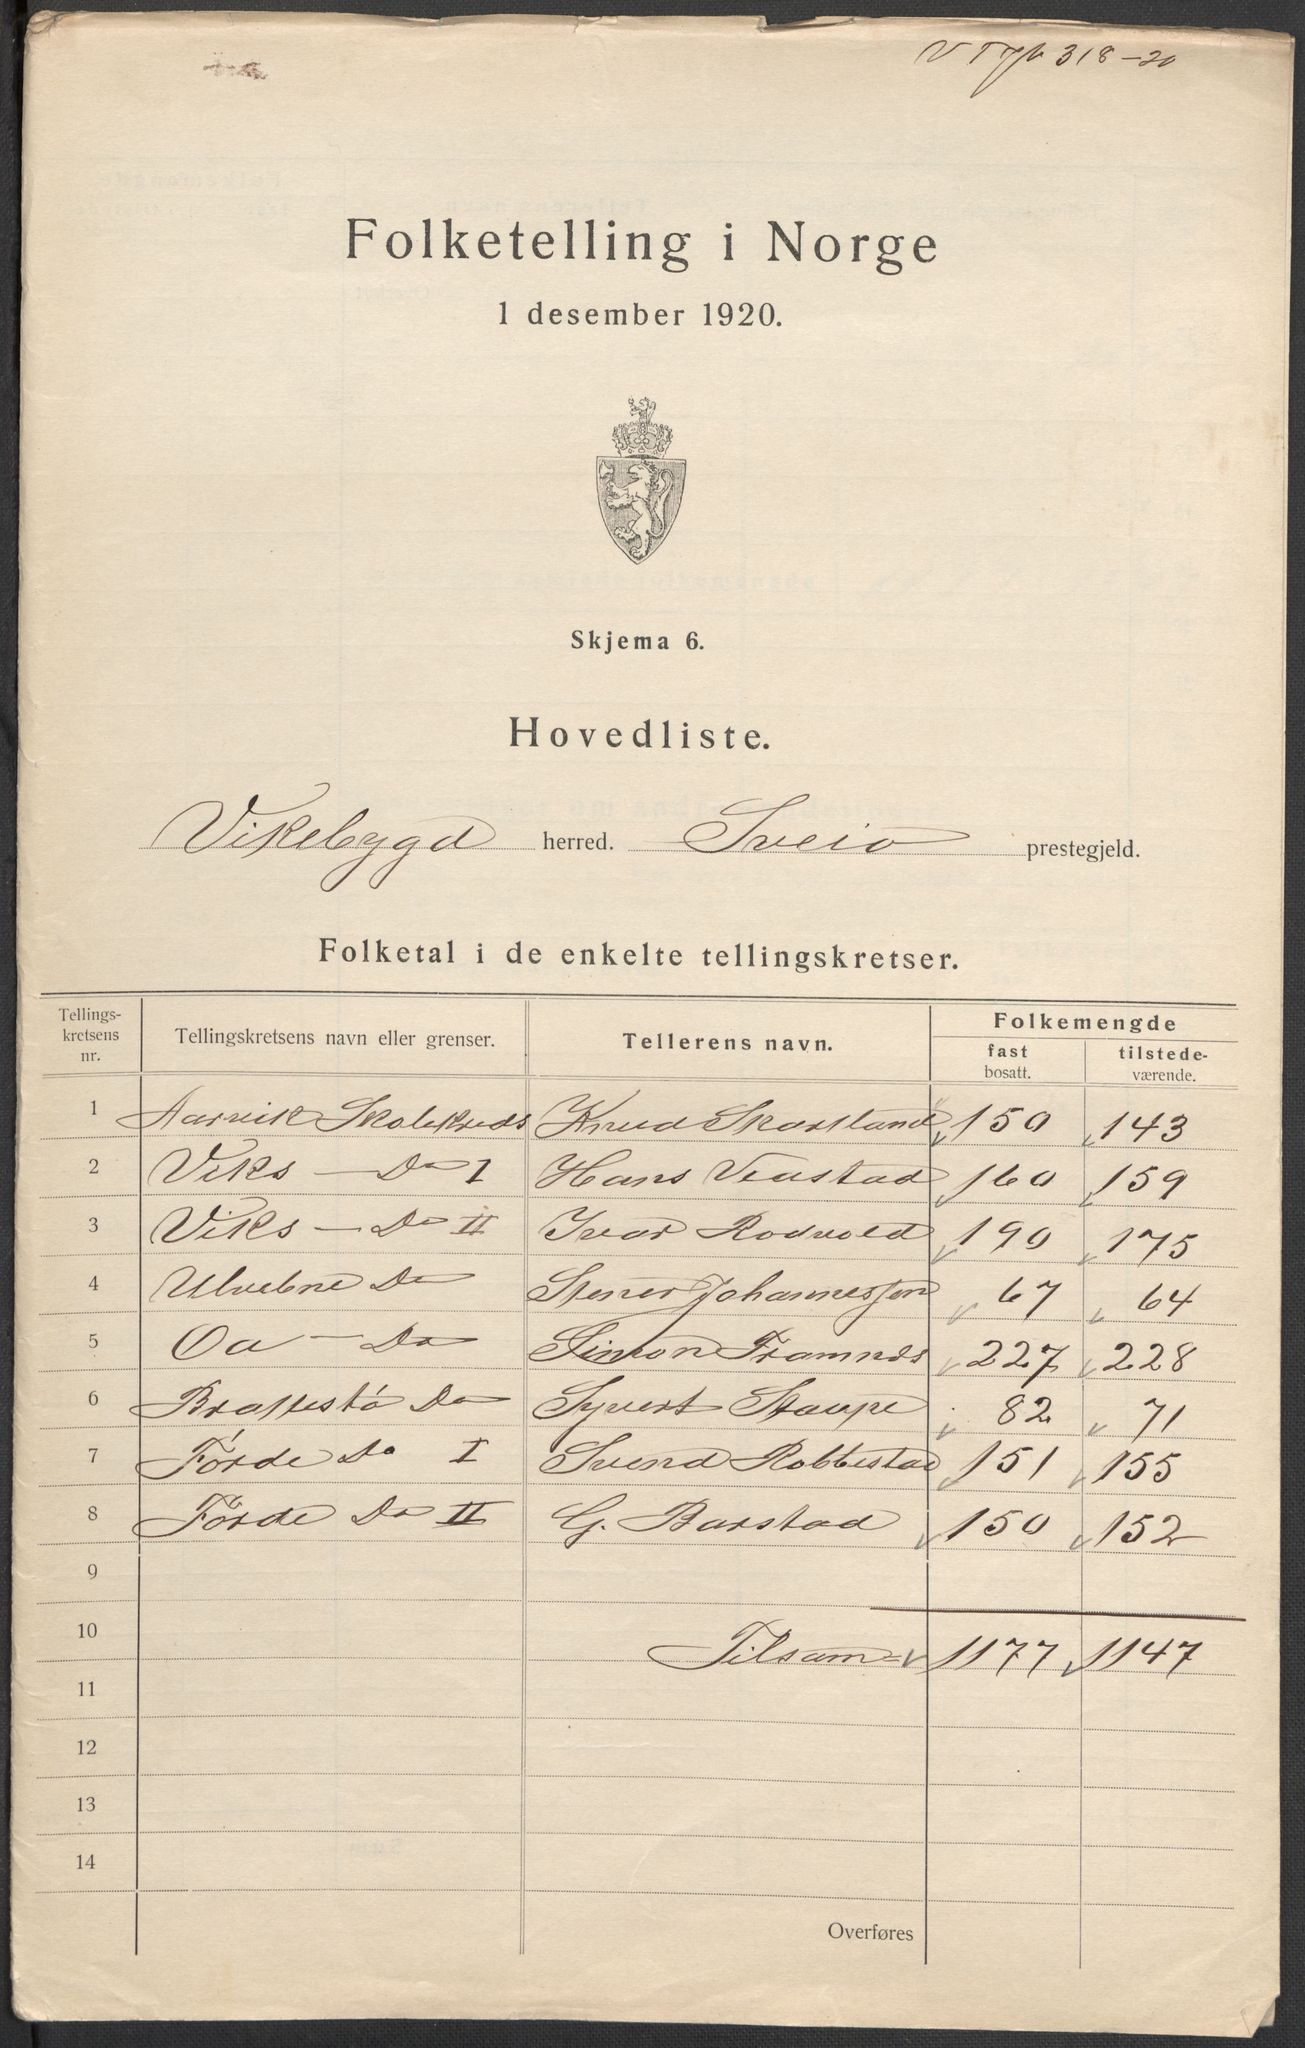 318-20
Folketelling i Norge
1 desember 1920.
Skjema 6.
Hovedliste.
Vikebygd herred. Sveio prestegjeld.
Folketal i de enkelte tellingskretser.
Tellings-kretsens nr. Tellingskretsens navn eller grenser. Tellerens navn. Folkemengde
fast bosatt. tilstede-værende.
1 Aarvik Skolekreds Knud Skartland 150 143
2 Viks — Do I Hans 160 159
3 Viks — Do II Ivar Rodvold 190 175
4 Do Stener Johannessen 67 64
5 Oa — Do Simon Framnes 227 228
6 Brattestö Do Syvert Staupe 82 71
7 Förde Do I Svend Robbestad 151 155
8 Förde Do II G. Barstad 150 152
9
10 Tilsam= 1177 1147
11
12
13
14
Overføres